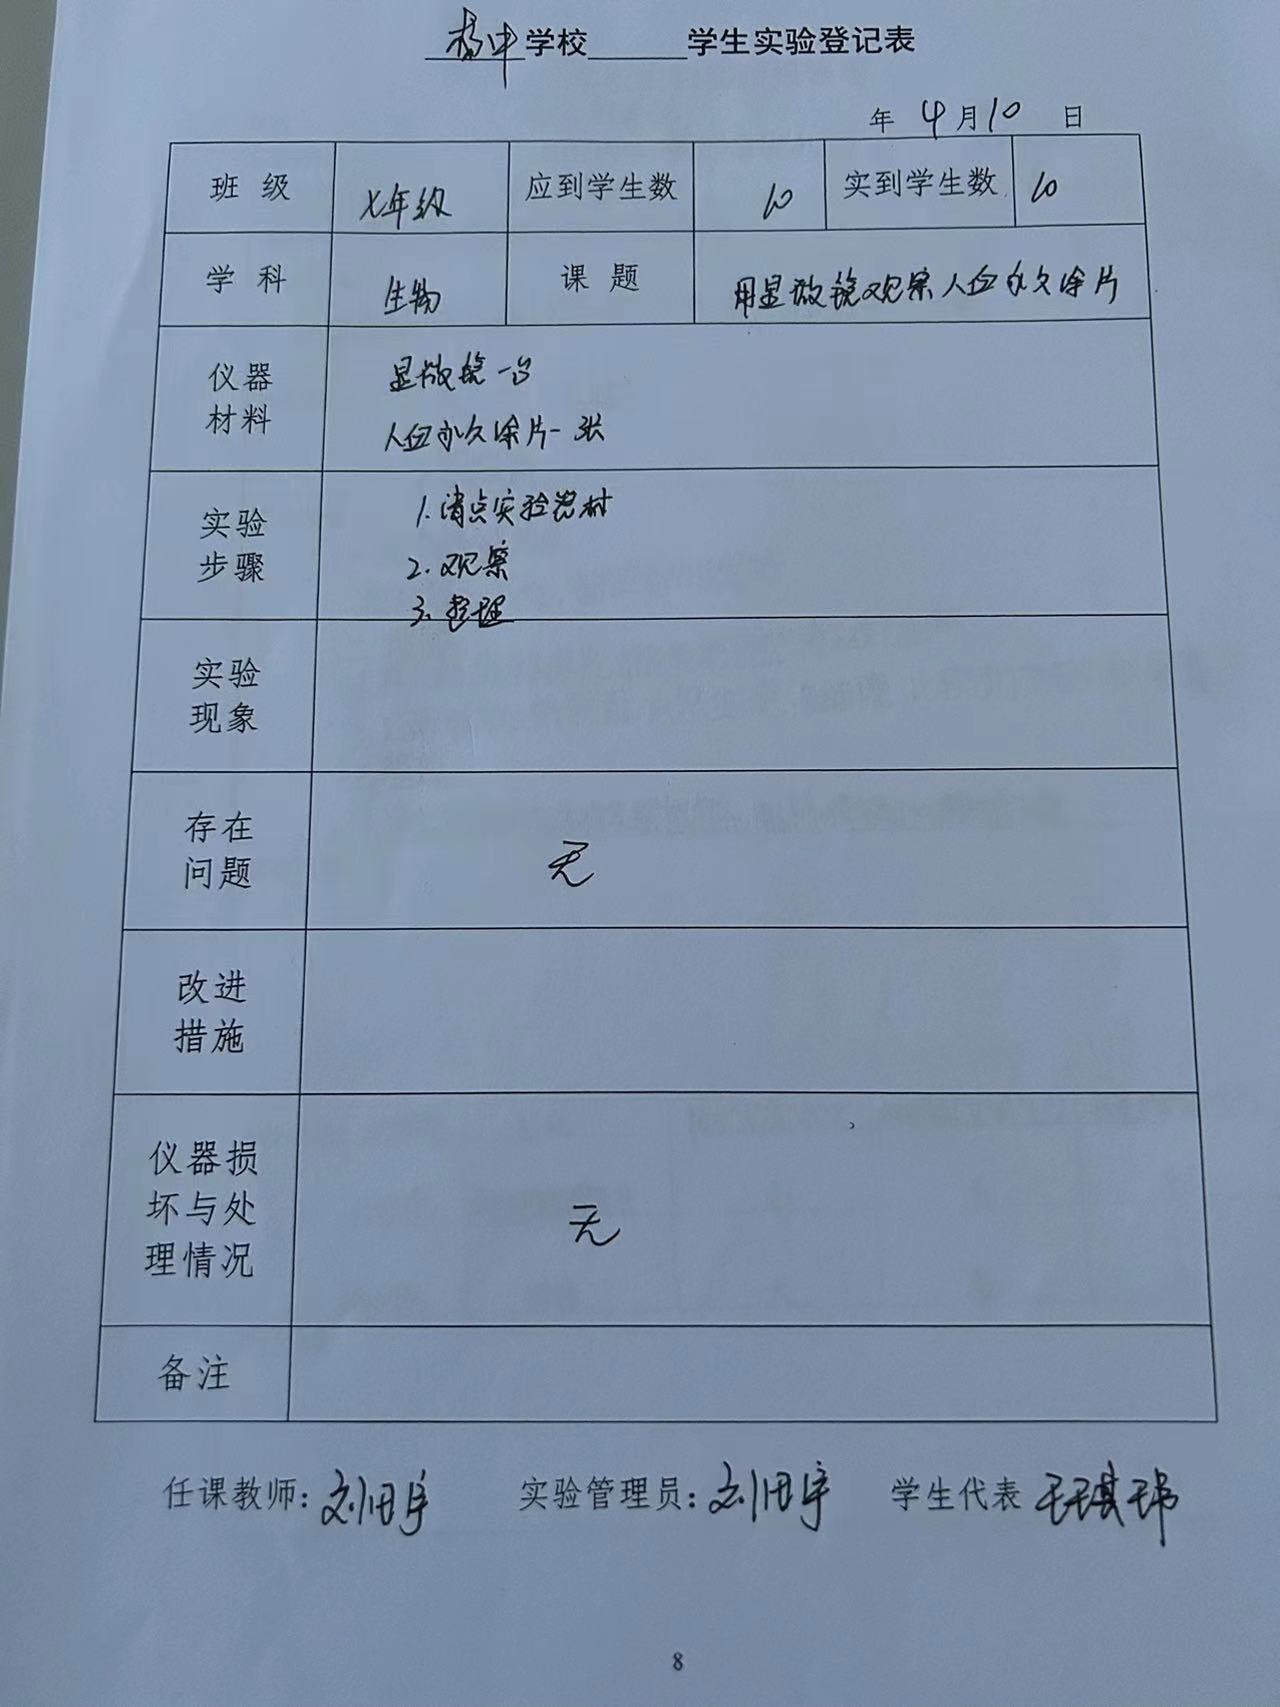 杨中学校 学生实验登记表
年 4月10 日
班 级 七年级 应到学生数 10 实到学生数 10
学 科 生物 课 题 用显微镜观察人血永久涂片
仪器
材料
显微镜一台
人血永久涂片一张
实验
步骤
1.清点实验器材
2.观察
3.整理
实验
现象
存在
问题
无
改进
措施
仪器损
坏与处
理情况
无
备注
任课教师:刘田宇 实验管理员:刘田宇 学生代表 王琪玮
8